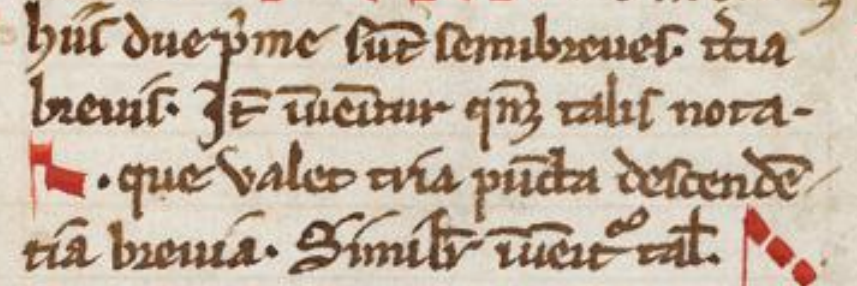 huiˀ due p̄me sūt semibreues. t̄cia
breuis. Jt̄ īuēitur qn̄ꝫ talis nota-
. que valet tria pūcta descendē
tia breuia. Similr̄ īueītᵒ tal̄.